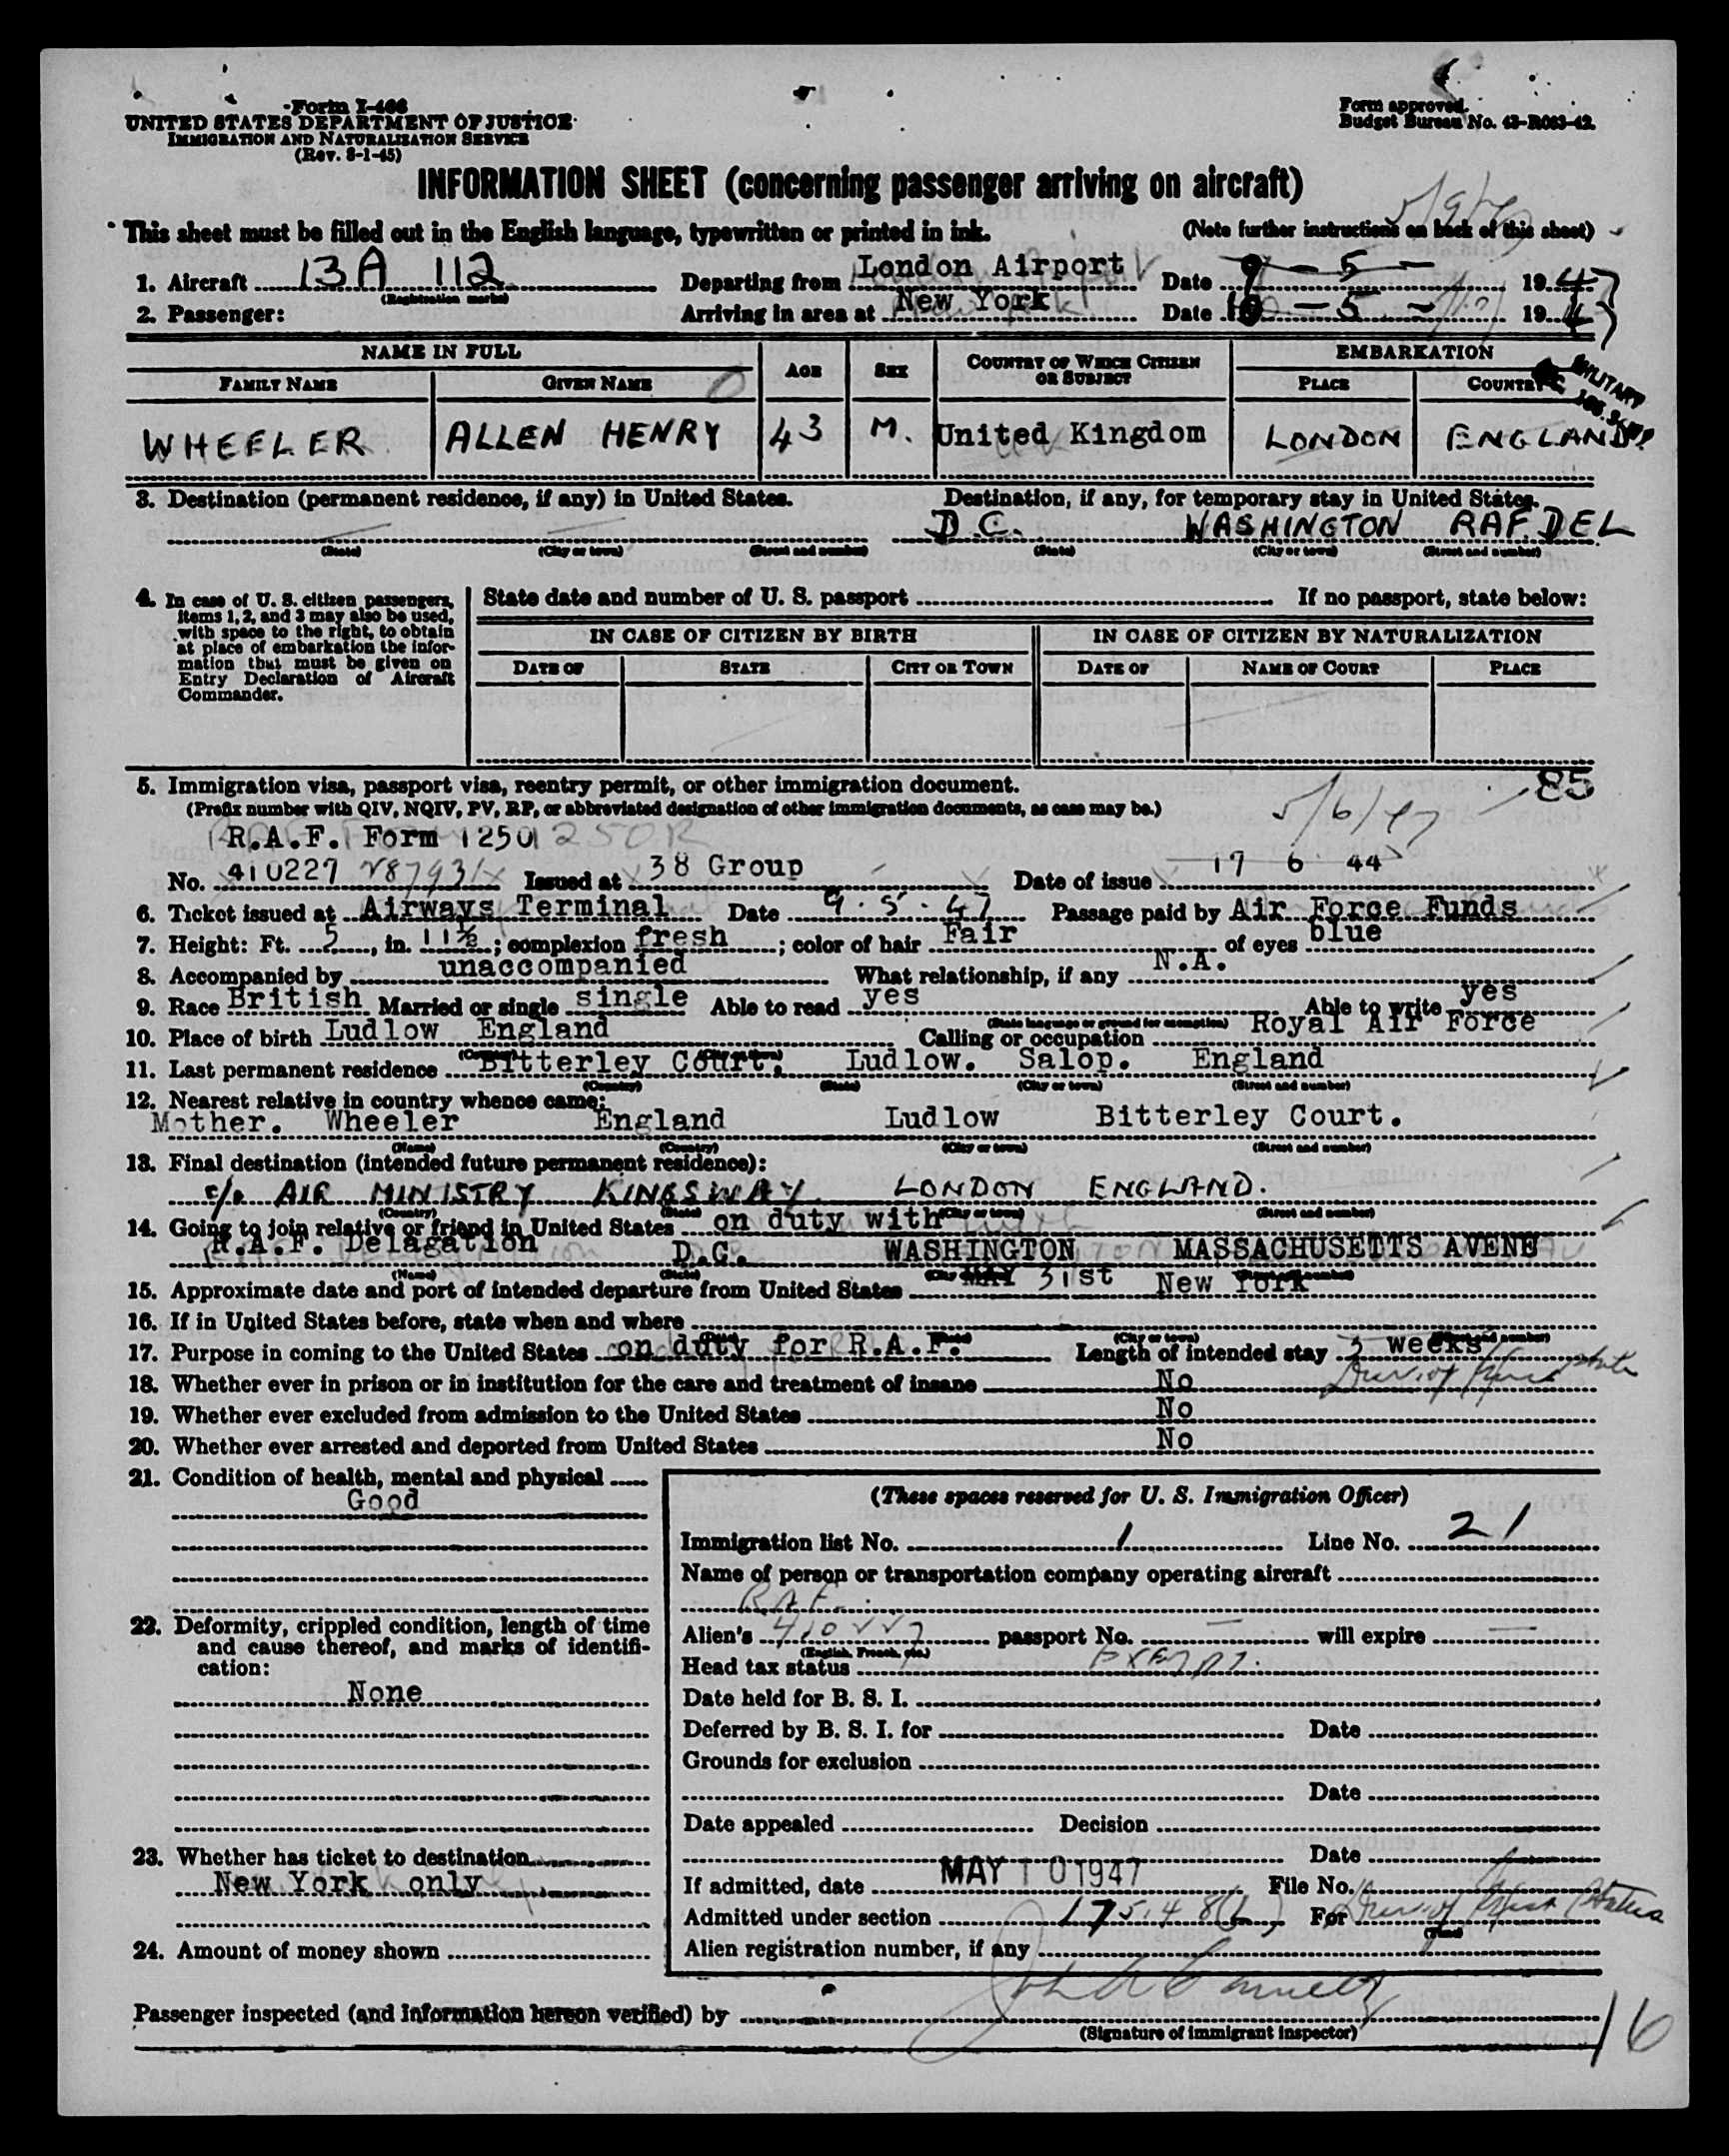 Form I-466
UNITED STATES DEPARTMENT OF JUSTICE
IMMIGRATION AND NATURALIZATION SERVICE
(Rev. 8-1-45)
Form approved.
Budget Bureau No. 43-R063-42.
INFORMATION SHEET (concerning passenger arriving on aircraft)
This sheet must be filled out in the English language, typewritten or printed in ink. (Note further instructions on back of this sheet)
1. Aircraft 13A 112 (Registration marks) Departing from London Airport Date 9 - 5 - 1947
2. Passenger: Arriving in area at New York Date 10 - 5 - 1947
NAME IN FULL AGE SEX COUNTRY OF WHICH CITIZEN OR SUBJECT EMBARKATION
FAMILY NAME GIVEN NAME PLACE COUNTRY
MILITARY
WHEELER ALLEN HENRY 43 M. United Kingdom LONDON ENGLAND
3. Destination (permanent residence, if any) in United States. Destination, if any, for temporary stay in United States.
D.C. WASHINGTON RAF.DEL
(State) (City or town) (Street and number) (State) (City or town) (Street and number)
4. In case of U. S. citizen passengers, items 1, 2, and 3 may also be used, with space to the right, to obtain at place of embarkation the information that must be given on Entry Declaration of Aircraft Commander.
State date and number of U. S. passport If no passport, state below:
IN CASE OF CITIZEN BY BIRTH IN CASE OF CITIZEN BY NATURALIZATION
DATE OF STATE CITY OR TOWN DATE OF NAME OF COURT PLACE
5. Immigration visa, passport visa, reentry permit, or other immigration document. 85
(Prefix number with QIV, NQIV, PV, RP, or abbreviated designation of other immigration documents, as case may be.) 5/6/47
R.A.F. Form 1250
No. 410227 Issued at 38 Group Date of issue 17 6 44
6. Ticket issued at Airways Terminal Date 9.5.47 Passage paid by Air Force Funds
7. Height: Ft. 5, in. 11½; complexion fresh; color of hair Fair of eyes blue
8. Accompanied by unaccompanied What relationship, if any N.A.
9. Race British Married or single single Able to read yes Able to write yes
(State language or ground for exemption)
10. Place of birth Ludlow England Calling or occupation Royal Air Force
(Country) (City or town)
11. Last permanent residence Bitterley Court. Ludlow. Salop. England
(Country) (State) (City or town) (Street and number)
12. Nearest relative in country whence came:
Mother. Wheeler England Ludlow Bitterley Court.
(Name) (Country) (City or town) (Street and number)
13. Final destination (intended future permanent residence):
c/o AIR MINISTRY KINGSWAY LONDON ENGLAND.
(Country) (State) (City or town) (Street and number)
14. Going to join relative or friend in United States on duty with
R.A.F. Delagation D.C. WASHINGTON MASSACHUSETTS AVENE
(Name) (State) (City or town) (Street and number)
15. Approximate date and port of intended departure from United States MAY 31st New York
16. If in United States before, state when and where
(Date) (State) (City or town) (Street and number)
17. Purpose in coming to the United States on duty for R.A.F. Length of intended stay 3 weeks
18. Whether ever in prison or in institution for the care and treatment of insane No
19. Whether ever excluded from admission to the United States No
20. Whether ever arrested and deported from United States No
21. Condition of health, mental and physical
Good
22. Deformity, crippled condition, length of time and cause thereof, and marks of identification:
None
23. Whether has ticket to destination
New York only
24. Amount of money shown
(These spaces reserved for U. S. Immigration Officer)
Immigration list No. 1 Line No. 21
Name of person or transportation company operating aircraft
R.A.F.
Alien's 410227 passport No. — will expire —
(English, French, etc.)
Head tax status Exempt.
Date held for B. S. I.
Deferred by B. S. I. for Date
Grounds for exclusion
Date
Date appealed Decision
Date
If admitted, date MAY 10 1947 File No.
Admitted under section 175.48(L) For
(Time)
Alien registration number, if any
Passenger inspected (and information hereon verified) by
(Signature of immigrant inspector)
16